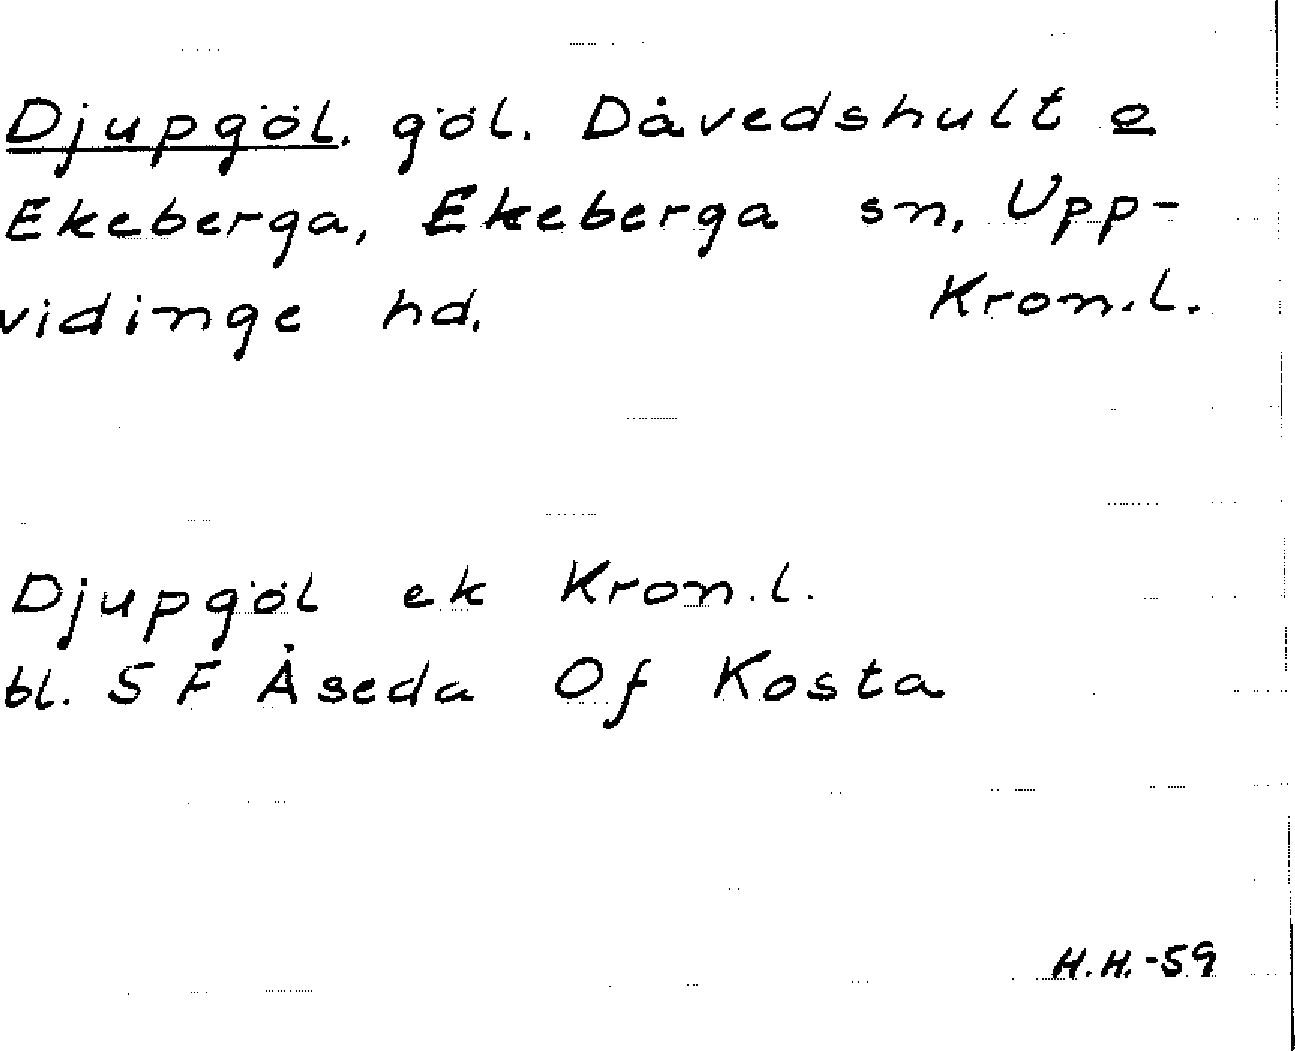 Djupgöl. göl. Dåvedshult o
Ekeberga, Ekeberga sn, Upp-
vidinge hd. Kron.l.
Djupgöl ek Kron.l.
bl. 5 F Åseda Of Kosta
H.H.-59